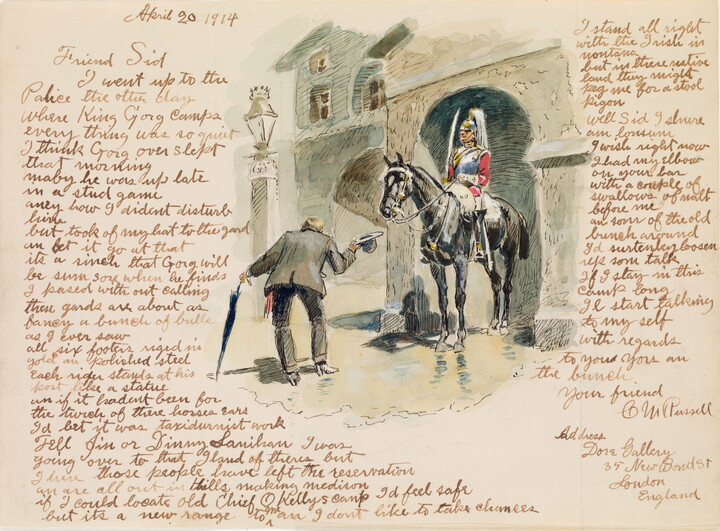 April 20 1914
Friend Sid
I went up to the
Palice the other day
where King Gorg camps
every thing was so quiet
I think Gorg over slept
that morning
maby he was up late
in a stud game
aney how I dident disturb
him
but took of my hat to the gard
an let it go at that
its a sinch that Gorg will
be sum sory when he finds
I pased with out calling
these gards are about as
fancy a bunch of bulls
as I ever saw
all six footers riged in
gold an polished steel
Each rider stands at his
post like a statue
an if it hadent been for
the twich of there horses ears
Id bet it was taxidurmist work
Tell Jin or Dinny Lanihan I was
going over to that Iland of theirs but
I hear those people have left the reservation
an are all out in hills making medison
if I could locate old Chief O Kellys camp Id feel safe
but its a new range to me an I dont like to take chances
I stand all right
with the Irish in
montana
but in there native
land they might
peg me for a stool
pigon
well Sid I shure
am lonsum
I wish right now
I had my elbow
on your bar
with a couple of
swallows of malt
before me
an som of the old
bunch around
Id surtenly loosen
up som talk
If I stay in this
camp long
Il start talking
to my self
with regards
to you yors an
the bunch
Your friend
C M Russell
Address
Dore Gallery
35 New Bond St
London
England